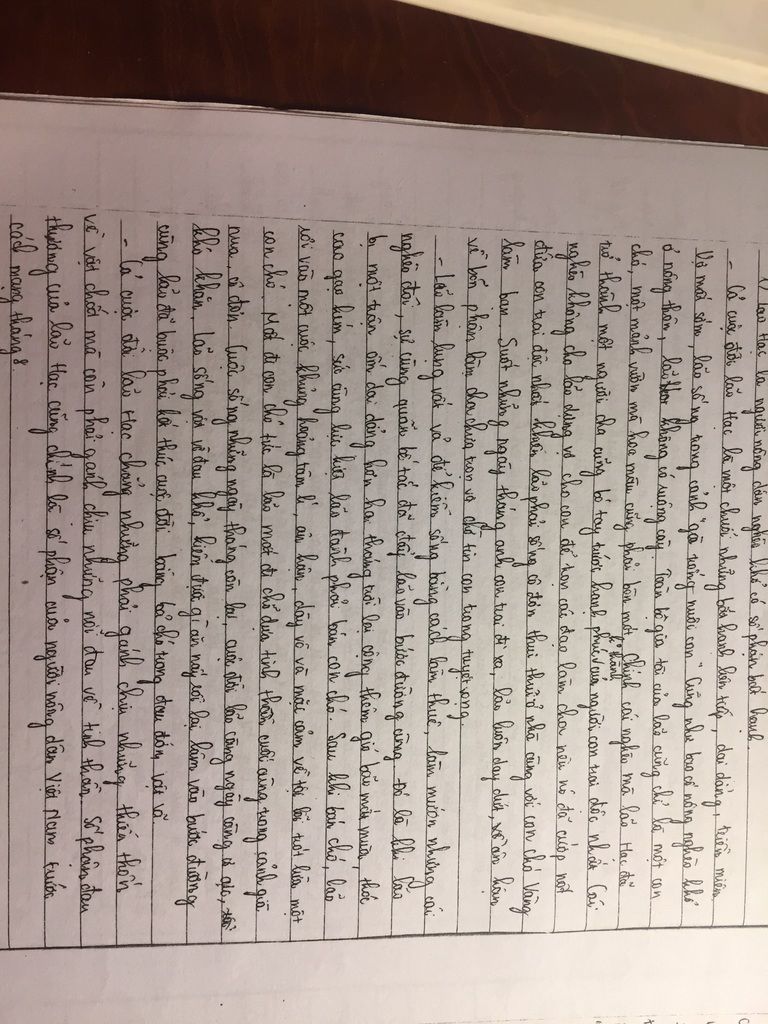 1/ Lão Hạc là người nông dân nghèo khổ có số phận bất hạnh
- Cả cuộc đời lão Hạc là một chuỗi những bất hạnh liên tiếp, dai dẳng, triền miên.
Vợ mất sớm, lão sống trong cảnh "gà trống nuôi con". Cũng như bao cố nông nghèo khổ
ở nông thôn, lão không có ruộng cày. Toàn bộ gia tài của lão cũng chỉ là một con
chó, một mảnh vườn mà hoa màu cũng phải bòn mót. Chính cái nghèo mà lão Hạc đã
trở thành một người cha cũng bó tay trước hạnh phúc k thành của người con trai độc nhất. Cái
nghèo không cho lão dựng vợ cho con để trọn cái đạo làm cha nên nó đã cướp nốt
đứa con trai độc nhất khiến lão phải sống cô đơn thui thủi ở nhà cùng với con chó Vàng
làm bạn. Suốt những ngày tháng anh con trai đi xa, lão luôn day dứt, về ân hận
về bổn phận làm cha chưa trọn và chờ tin con trong tuyệt vọng.
- Lão làm lụng vất vả để kiếm sống bằng cách làm thuê, làm mướn nhưng cái
nghèo đói, sự cùng quẫn bế tắc đã đẩy lão vào bước đường cùng. Đó là khi lão
bị một trận ốm dai dẳng hơn hai tháng trời lại cộng thêm gió bão mất mùa, thóc
cao gạo kém, sức cùng lực kiệt lão đành phải bán con chó. Sau khi bán chó, lão
rơi vào một cuộc khủng hoảng tâm lí, ân hận, dày vò và mặc cảm về tội lỗi trót lừa một
con chó. Mất đi con chó tức là lão mất đi chỗ dựa tinh thần cuối cùng trong cảnh già
nua, cô đơn. Cuộc sống những ngày tháng còn lại, cuộc đời lão càng ngày càng cô độc,
khó khăn. Lão sống vò võ đau khổ, kiếm được gì ăn nấy rồi lại lâm vào bước đường
cùng lão đã buộc phải kết thúc cuộc đời bằng bả chó trong đau đớn, vật vã.
- Cả cuộc đời lão Hạc chẳng những phải gánh chịu những thiếu thốn
về vật chất mà còn phải gánh chịu những nỗi đau về tinh thần. Số phận đau
thương của lão Hạc cũng chính là số phận của người nông dân Việt Nam trước
cách mạng tháng 8